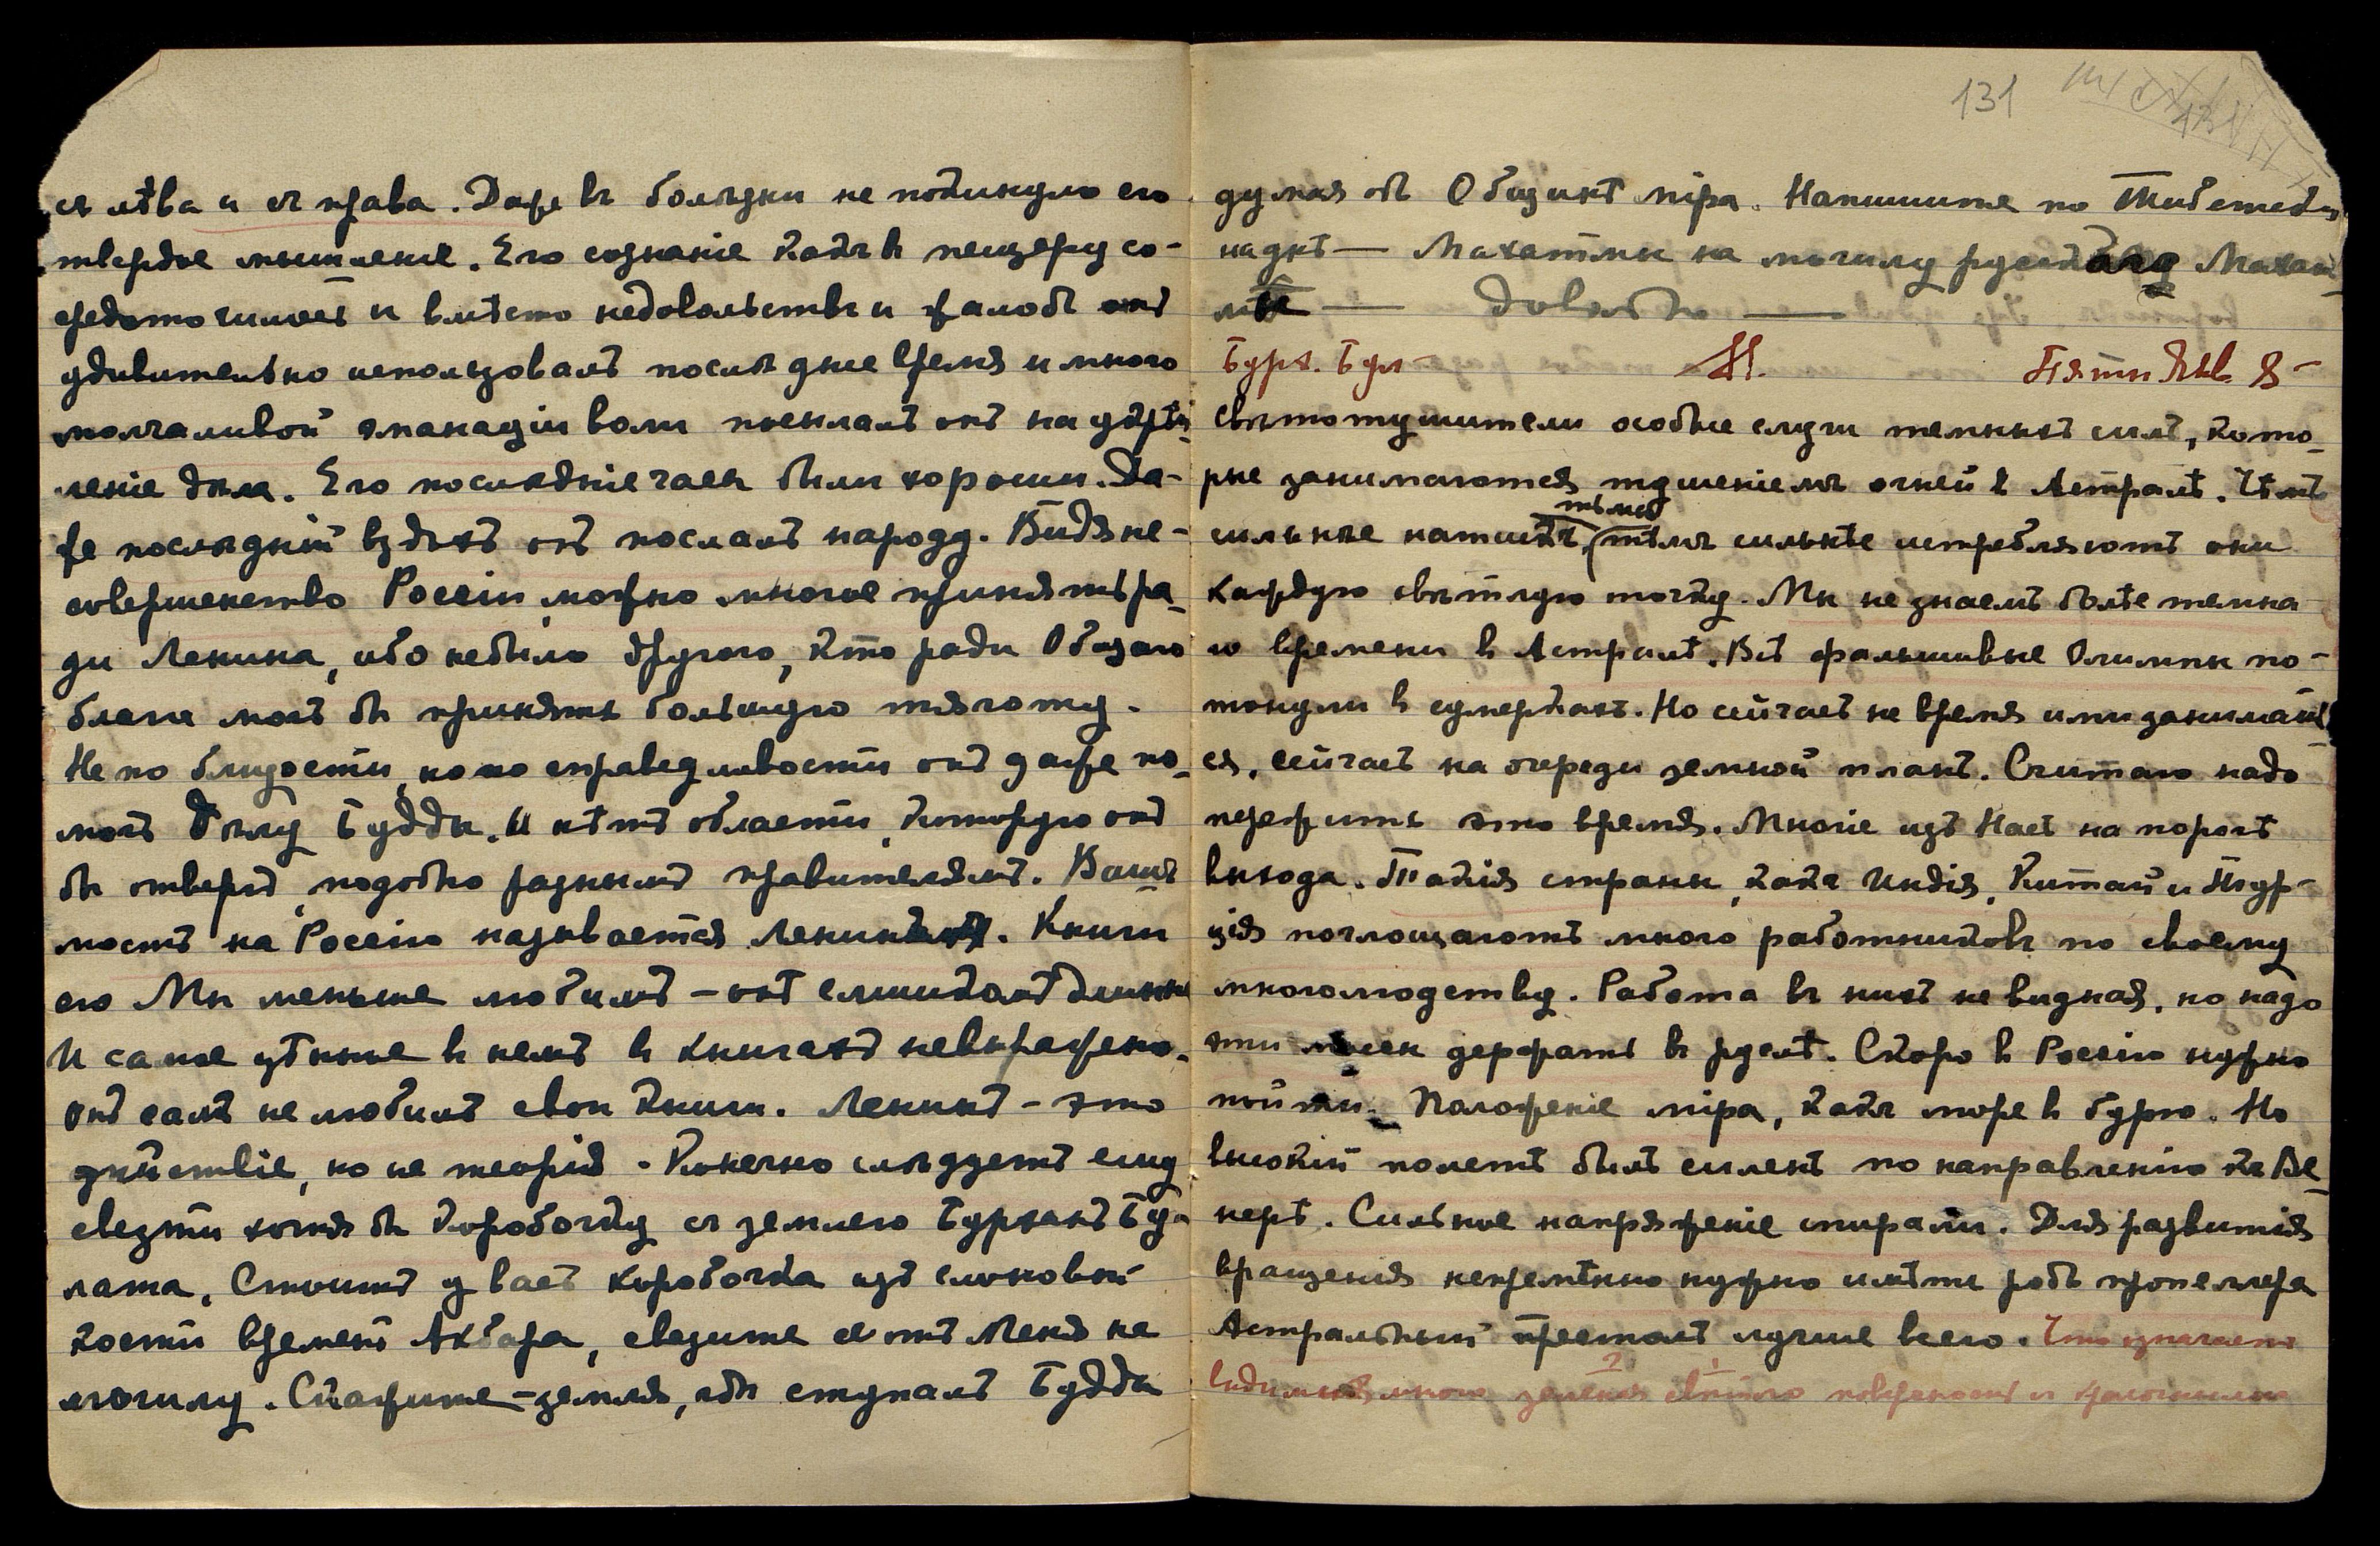 съ лѣва и съ права. Даже въ болѣзни не покинуло его
твердое мышленіе. Его сознаніе какъ в пещеру со-
средоточилось и вмѣсто недовольствъ и жалобъ онъ
удивительно использовалъ послѣднее время и много
молчаливой эманаціи воли посылалъ онъ на укрѣп-
леніе дѣла. Его послѣдніе часы были хороши. Да-
же послѣдній вздохъ онъ послалъ народу. Видя не-
совершенство Россіи, можно многое принять ра-
ди Ленина, ибо небыло другого, кто ради Общаго
блага могъ бы принять большую тяготу.
Не по близости, но по справедливости онъ даже по-
могъ Дѣлу Будды. И нѣтъ области, которую онъ
бы отвергъ, подобно разнымъ правителямъ. Вашъ
мостъ на Россію называется Ленинымъ. Книги
его Мы меньше любимъ – онѣ слишкомъ длинны
И самое цѣнное в немъ в книгахъ невыражено.
Онъ самъ не любилъ свои книги. Ленинъ – это
дѣйствіе, но не теорія. Конечно слѣдуетъ ему
свезти хотя бы коробочку съ землею Бурханъ Бу-
лата. Стоитъ у васъ коробочка изъ слоновой
кости временъ Акбара, свезите ее отъ Меня на
могилу. Скажите – земля, гдѣ ступалъ Будда
131
думая объ Общинѣ міра. Напишите по Тибетски
надпь — Махатмы на могилу русскаго Махат-
мы — Довольно —
Бурх. Бул. М. Пятн. Янв. 8 –
свѣтотушители особые слуги темныхъ силъ, кото-
рые занимаются тушеніемъ огней в Астралѣ. Чѣмъ
тьмы
сильнѣе натискъ, (тѣмъ сильнѣе истребляютъ они
каждую свѣтлую точку. Мы не знаемъ болѣе темна
го времени в Астралѣ. Всѣ фальшивые Олимпы по-
тонули в сумеркахъ. Но сейчасъ не время ими занимать
ся, сейчасъ на очереди земной планъ. Считаю надо
пережить это время. Многіе изъ Насъ на порогѣ
выхода. Такія страны, какъ Индія, Китай и Тур-
ція поглощаютъ много работниковъ по своему
многолюдству. Работа въ нихъ не видная, но надо
эти массы держать въ руслѣ. Скоро в Россію нужно
пойти. Положеніе міра, какъ море в бурю. Но
высокій полетъ былъ силенъ по направленію къ Ве-
нерѣ. Сильное напряженіе спирали. Для развитія
вращенія непремѣнно нужно имѣть родъ пропеллера
Астральный престолъ лучше всего. Что означаетъ
видимая много зеленая свѣтлая поверхность съ